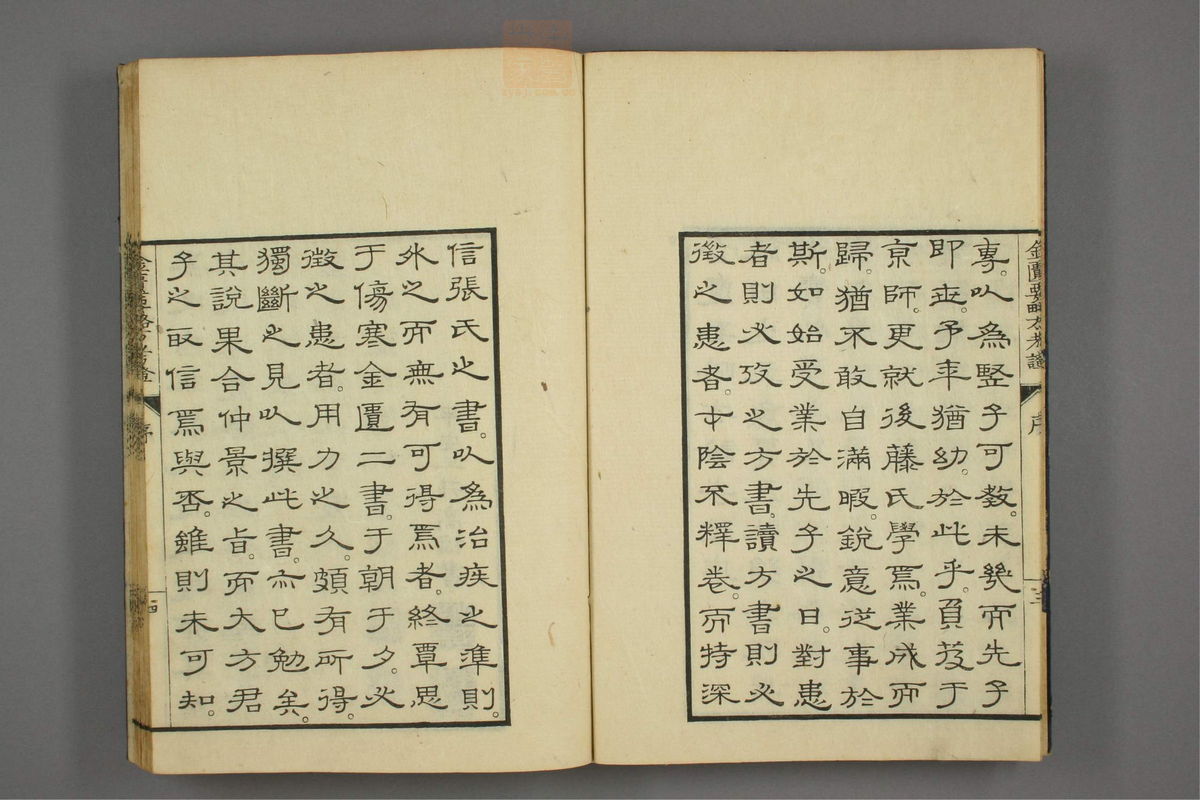 金匱要畧方考證 序 三
專。以爲竪子可教。未幾而先子
即世。予年猶幼。於此乎。負笈于
京師。更就後藤氏學焉。業成而
歸。猶不敢自滿暇。銳意從事於
斯。如始受業於先子之日。對患
者則必攷之方書。讀方書則必
徵之患者。寸陰不釋卷。而特深
信張氏之書。以爲治疾之準則。
外之而無有可得焉者。終覃思
于傷寒金匱二書。于朝于夕。必
徵之患者。用力之久。頗有所得。
獨斷之見以撰此書。亦已勉矣。
其說果合仲景之旨。而大方君
子之取信焉與否。雖則未可知。
序 四